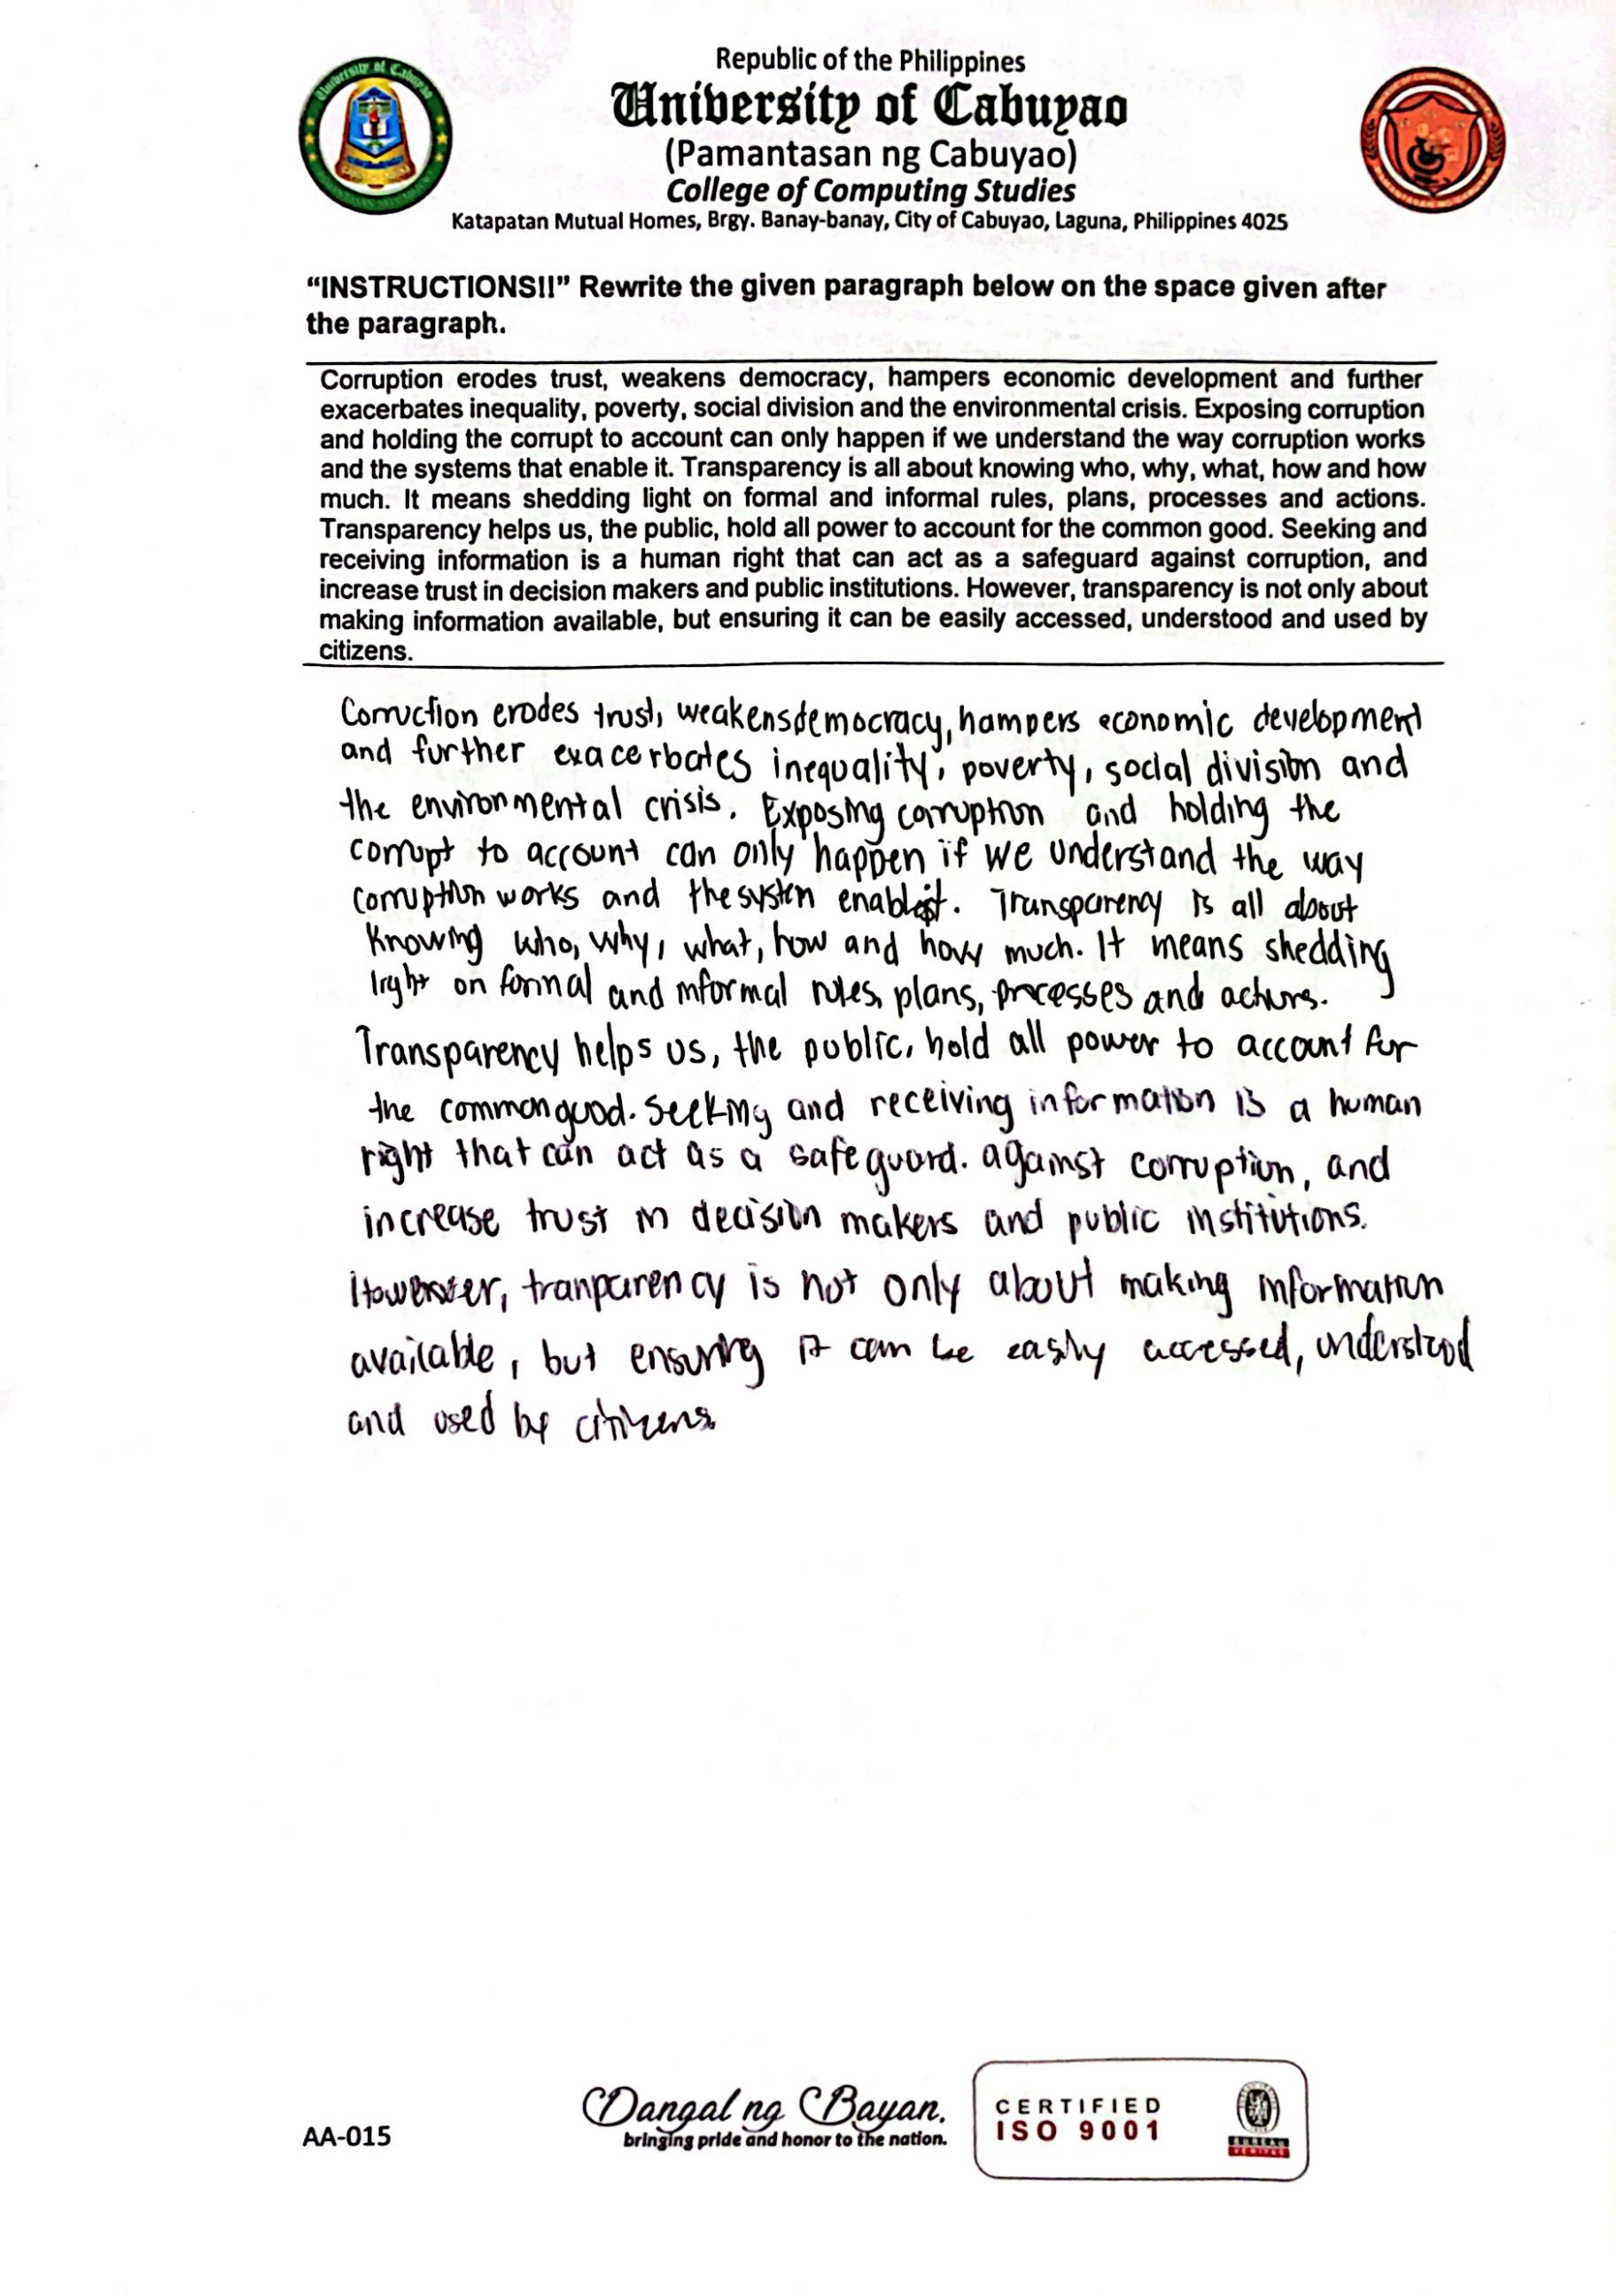 Republic of the Philippines
University of Cabuyao
(Pamantasan ng Cabuyao)
College of Computing Studies
Katapatan Mutual Homes, Brgy. Banay-banay, City of Cabuyao, Laguna, Philippines 4025
University of Cabuyao
“INSTRUCTIONS!!” Rewrite the given paragraph below on the space given after
the paragraph.
Corruption erodes trust, weakens democracy, hampers economic development and further
exacerbates inequality, poverty, social division and the environmental crisis. Exposing corruption
and holding the corrupt to account can only happen if we understand the way corruption works
and the systems that enable it. Transparency is all about knowing who, why, what, how and how
much. It means shedding light on formal and informal rules, plans, processes and actions.
Transparency helps us, the public, hold all power to account for the common good. Seeking and
receiving information is a human right that can act as a safeguard against corruption, and
increase trust in decision makers and public institutions. However, transparency is not only about
making information available, but ensuring it can be easily accessed, understood and used by
citizens.
Corruction erodes trust, weakens democracy, hampers economic development
and further exacerbates inequality, poverty, social division and
the environmental crisis. Exposing corruption and holding the
corrupt to account can only happen if we understand the way
corruption works and the system enable it. Transparency is all about
knowing who, why, what, how and how much. It means shedding
light on formal and informal rules, plans, processes and actions.
Transparency helps us, the public, hold all power to account for
the common good. Seeking and receiving information is a human
right that can act as a safeguard. against corruption, and
increase trust in decision makers and public institutions.
However, tranparency is not only about making information
available, but ensuring it can be easily accessed, understood
and used by citizens.
AA-015
Dangal ng Bayan.
bringing pride and honor to the nation.
CERTIFIED
ISO 9001
BUREAU
VERITAS